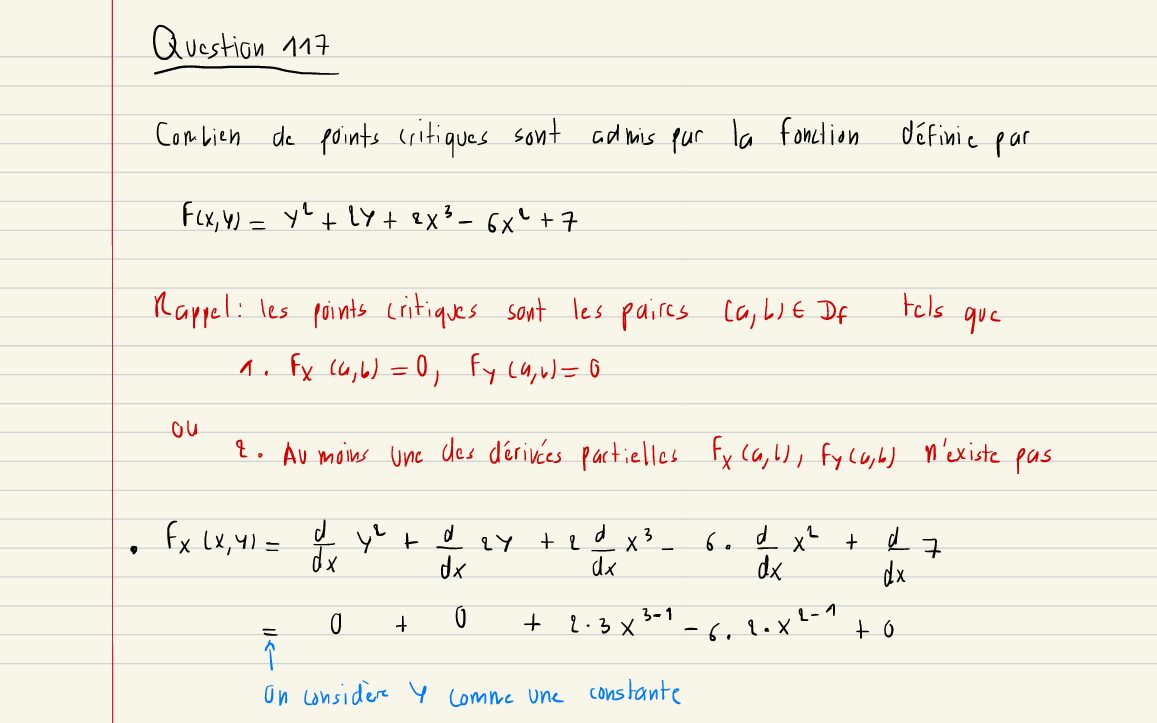 Question 117
Combien de points critiques sont admis par la fonction définie par
F(x,y) = y² + 2y + 2x³ - 6x² + 7
Rappel: les points critiques sont les paires (a,b) ∈ Df tels que
1. Fx (a,b) = 0, Fy (a,b) = 0
ou
2. Au moins une des dérivées partielles Fx (a,b), Fy (a,b) n'existe pas
• Fx (x,y) = d/dx y² + d/dx 2y + 2 d/dx x³ - 6 · d/dx x² + d/dx 7
= 0 + 0 + 2·3x³⁻¹ - 6·2·x²⁻¹ + 0
↑
On considère y comme une constante